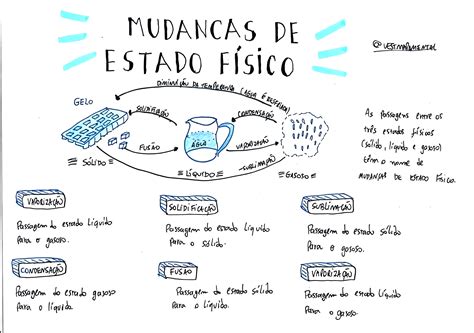 MUDANCAS DE
ESTADO FÍSICO
@VESTMAPAMENTAL
DIMINUIÇÃO DA TEMPERATURA (ÁGUA É RESFRIADA)
GELO
SOLIDIFICAÇÃO
CONDENSAÇÃO
FUSÃO
ÁGUA
VAPORIZAÇÃO
SUBLIMAÇÃO
SÓLIDO
LÍQUIDO
GASOSO
As passagens entre os
três estados físicos
(sólido, líquido e gasoso)
têm o nome de
MUDANÇAS DE ESTADO FÍSICO.
VAPORIZAÇÃO
Passagem do estado líquido
para o gasoso.
SOLIDIFICAÇÃO
Passagem do estado líquido
para o sólido.
SUBLIMAÇÃO
Passagem do estado sólido
para o gasoso.
CONDENSAÇÃO
Passagem do estado gasoso
para o líquido.
FUSÃO
Passagem do estado sólido
para o líquido.
VAPORIZAÇÃO
Passagem do estado líquido
para o gasoso.